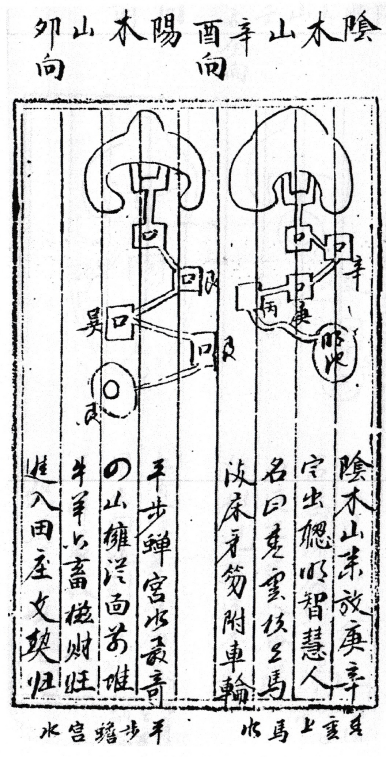 陰木山辛酉向
陽木山卯向
辛
庚
丙
明池
艮
巽
艮
艮
陰木山来放庚辛
定出聰明智慧人
名曰青雲上馬
床牙笏附車輪
平步蟬宮水最奇
四山擁從面前堆
牛羊六畜横财旺
進入田座文契归
青雲上馬水
平步蟾宮水